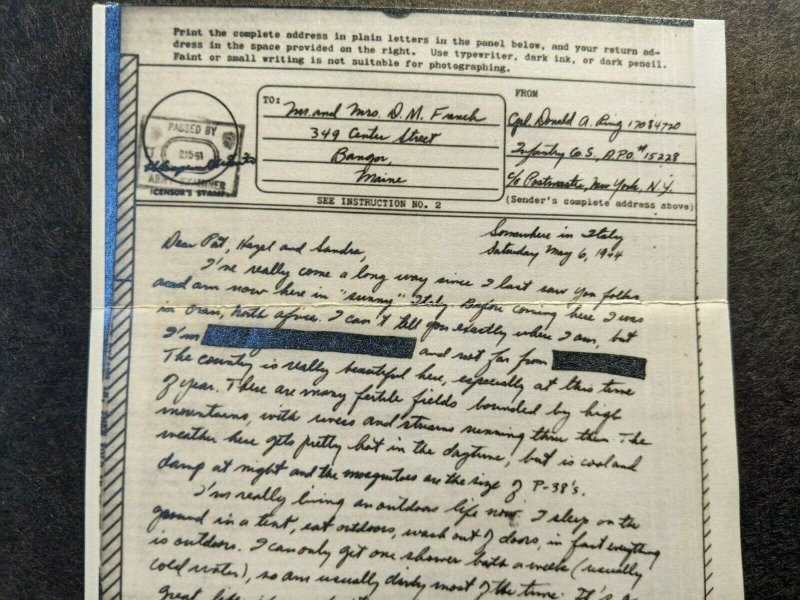 Print the complete address in plain letters in the panel below, and your return ad-
dress in the space provided on the right. Use typewriter, dark ink, or dark pencil.
Faint or small writing is not suitable for photographing.
TO:
Mr. and Mrs. D. M. French
349 Center Street
Bangor,
Maine
FROM
Cpl. Donald A. Ring 17084720
Infantry Co. S, A.P.O. #15228
c/o Postmaster, New York, N.Y.
(Sender's complete address above)
PASSED BY
ARMY EXAMINER
(CENSOR'S STAMP)
SEE INSTRUCTION NO. 2
Somewhere in Italy
Saturday May 6, 1944
Dear Pat, Hazel and Sandra,
I've really come a long way since I last saw you folks
and am now here in "sunny" Italy. Before coming here I was
in Oran, North Africa. I can't tell you exactly where I am, but
I'm and not far from
The country is really beautiful here, especially at this time
of year. There are many fertile fields bounded by high
mountains, with rivers and streams running thru them. The
weather here gets pretty hot in the daytime, but is cool and
damp at night and the mosquitoes are the size of P-38's.
I'm really living an outdoors life now. I sleep on the
ground in a tent, eat outdoors, wash out of doors, in fact everything
is outdoors. I can only get one shower bath a week (usually
cold water), so am usually dirty most of the time. It's a
great life